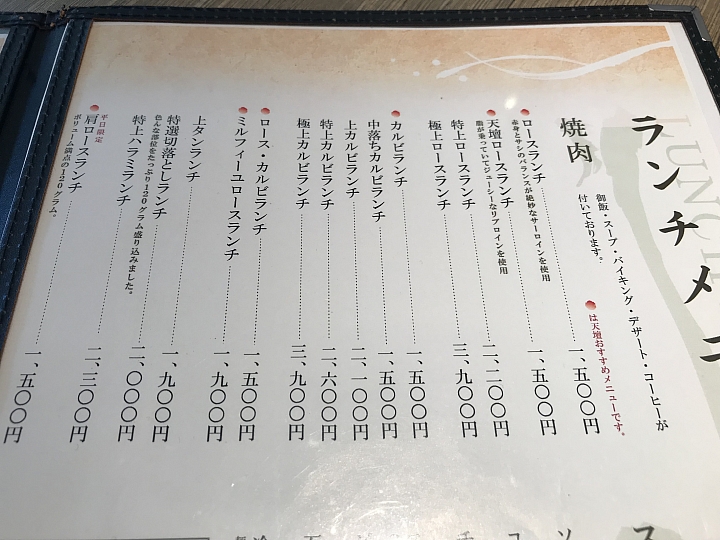 LUNCH
ランチメニ
御飯・スープ・バイキング・デザート・コーヒーが
付いております。
は天壇おすすめメニューです。
焼肉
ロースランチ 一、五〇〇円
赤身とサシのバランスが絶妙なサーロインを使用
天壇ロースランチ 一、五〇〇円
脂が乗っていてジューシーなリブロインを使用
特上ロースランチ 二、二〇〇円
極上ロースランチ 三、九〇〇円
カルビランチ 一、五〇〇円
中落ちカルビランチ 一、五〇〇円
上カルビランチ 二、一〇〇円
特上カルビランチ 二、六〇〇円
極上カルビランチ 三、九〇〇円
ロース・カルビランチ 一、五〇〇円
ミルフィーユロースランチ 一、九〇〇円
上タンランチ 一、九〇〇円
特選切落としランチ 二、〇〇〇円
色んな部位をたっぷり120グラム盛り込みました。
特上ハラミランチ 二、三〇〇円
平日限定
肩ロースランチ 一、五〇〇円
ボリューム満点の120グラム。